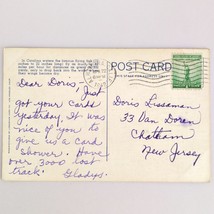 POST CARD
Dear Doris,- Just
got your cards
yesterday. It was
nice of you to
give us a card
shower. Have
over 3000 lost
track.
Gladys.
Doris Lussman
33 Van Doren
Chatham
New Jersey